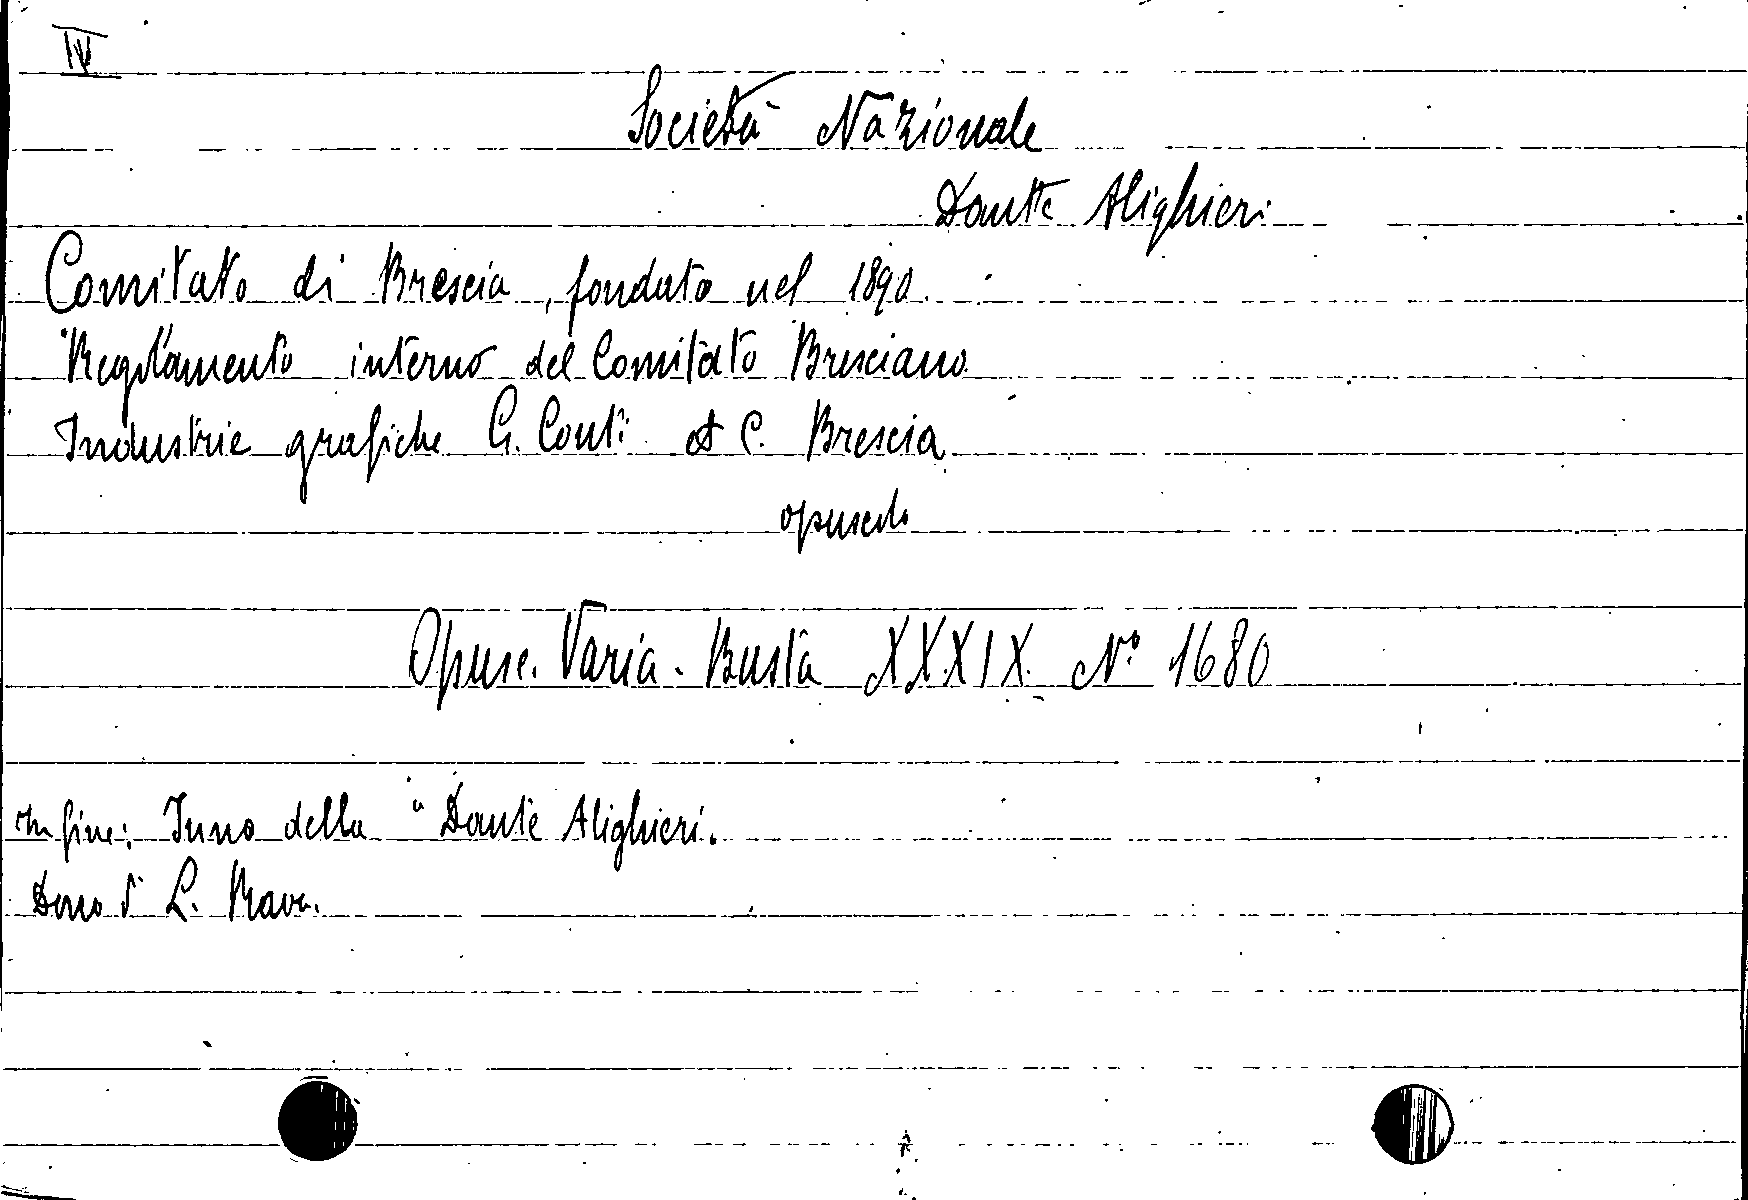 IV
Società Nazionale
Dante Alighieri
Comitato di Brescia, fondato nel 1890.
Regolamento interno del Comitato Bresciano
Industrie grafiche G. Conti et C. Brescia
opuscolo
Opusc. Varia - Busta XXXIX N.° 1680
In fine: Inno della "Dante Alighieri.
Dono di L. Rava.